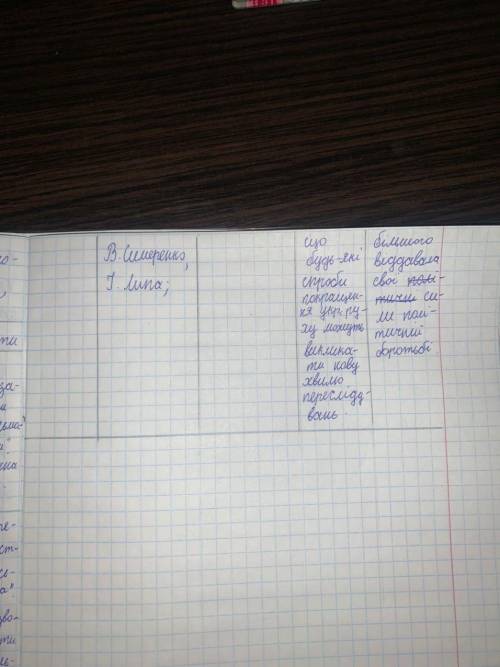 В. Симеренко,
І. Липа;
що
будь-які
спроби
покращен-
ня укр. ру-
ху можуть
виклика-
ти нову
хвилю
переслідд-
вань.
більшого
віддавала
свої полі-
тични си-
ли полі-
тичній
боротьбі